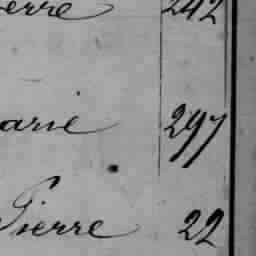 erre 242
arie 297
Pierre 22